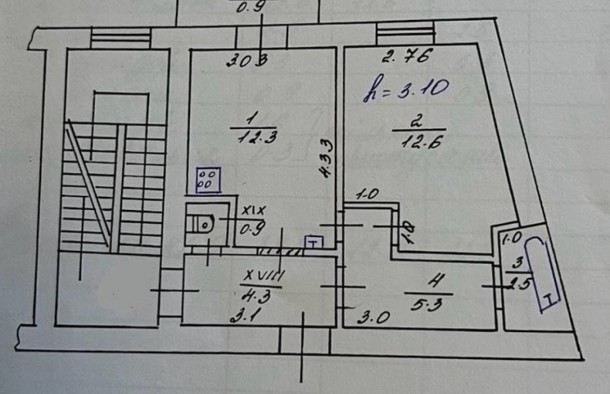 0.9
3.03
2.76
h = 3.10
1
12.3
2
12.6
4.33
1.0
XIX
0.9
1.0
1.0
T
3
2.5
T
XVIII
4.3
4
5.3
3.1
3.0